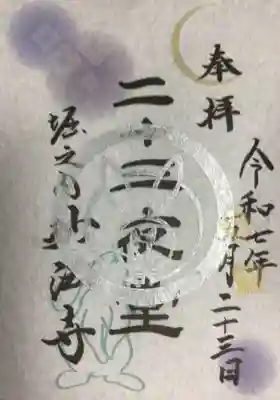 奉拝
令和七年
月二十三日
二十三夜堂
堀之内
寺